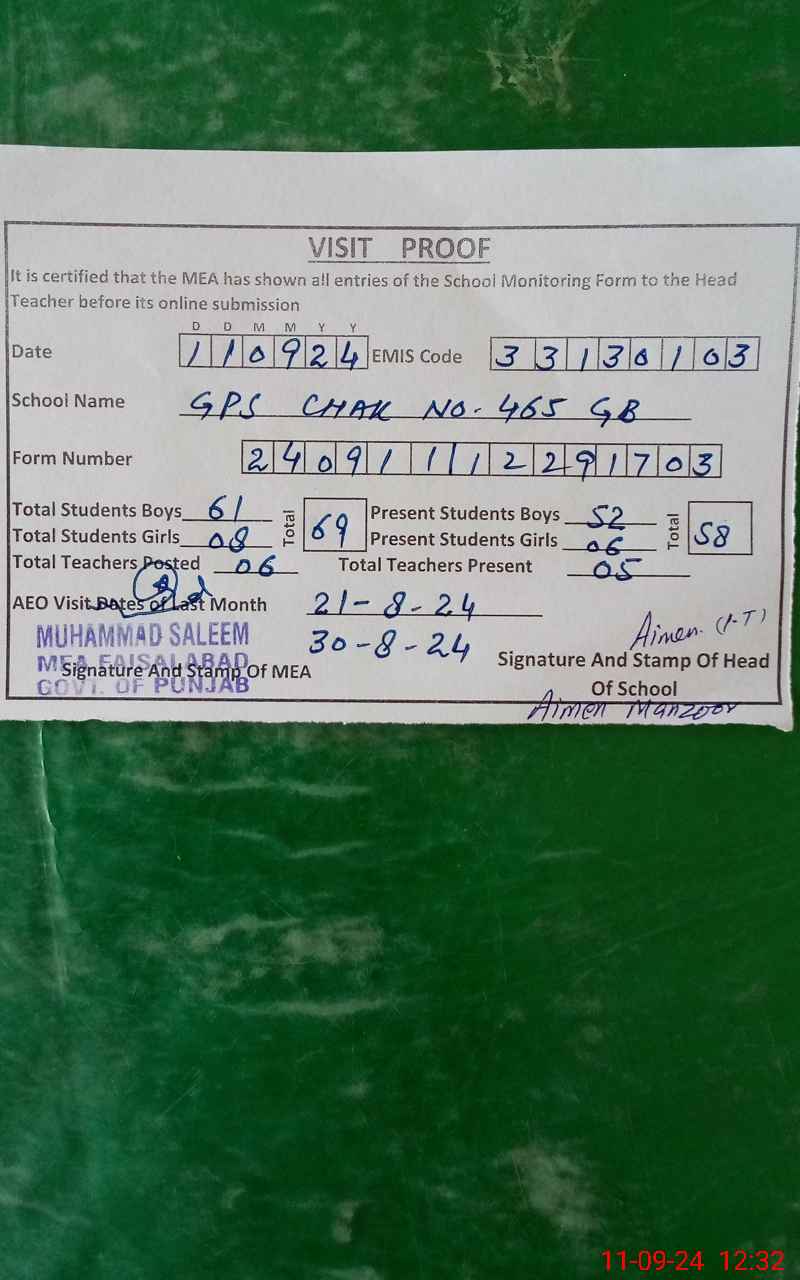 VISIT PROOF
It is certified that the MEA has shown all entries of the School Monitoring Form to the Head
Teacher before its online submission
D D M M Y Y
Date 110924 EMIS Code 33130103
School Name GPS CHAK NO. 465 GB
Form Number 240911112291703
Total Students Boys 61 Total 69 Present Students Boys 52 Total 58
Total Students Girls 08 Present Students Girls 06
Total Teachers Posted 06 Total Teachers Present 05
AEO Visit Dates of Last Month 21-8-24
30-8-24
MUHAMMAD SALEEM
MEA FAISALABAD
GOVT. OF PUNJAB
Signature And Stamp Of MEA
Aimen.
Signature And Stamp Of Head
Of School
Aimen Manzoor
11-09-24 12:32